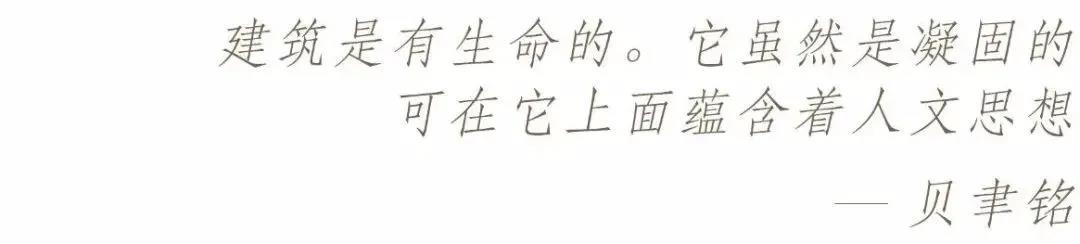 建筑是有生命的。它虽然是凝固的
可在它上面蕴含着人文思想
— 贝聿铭